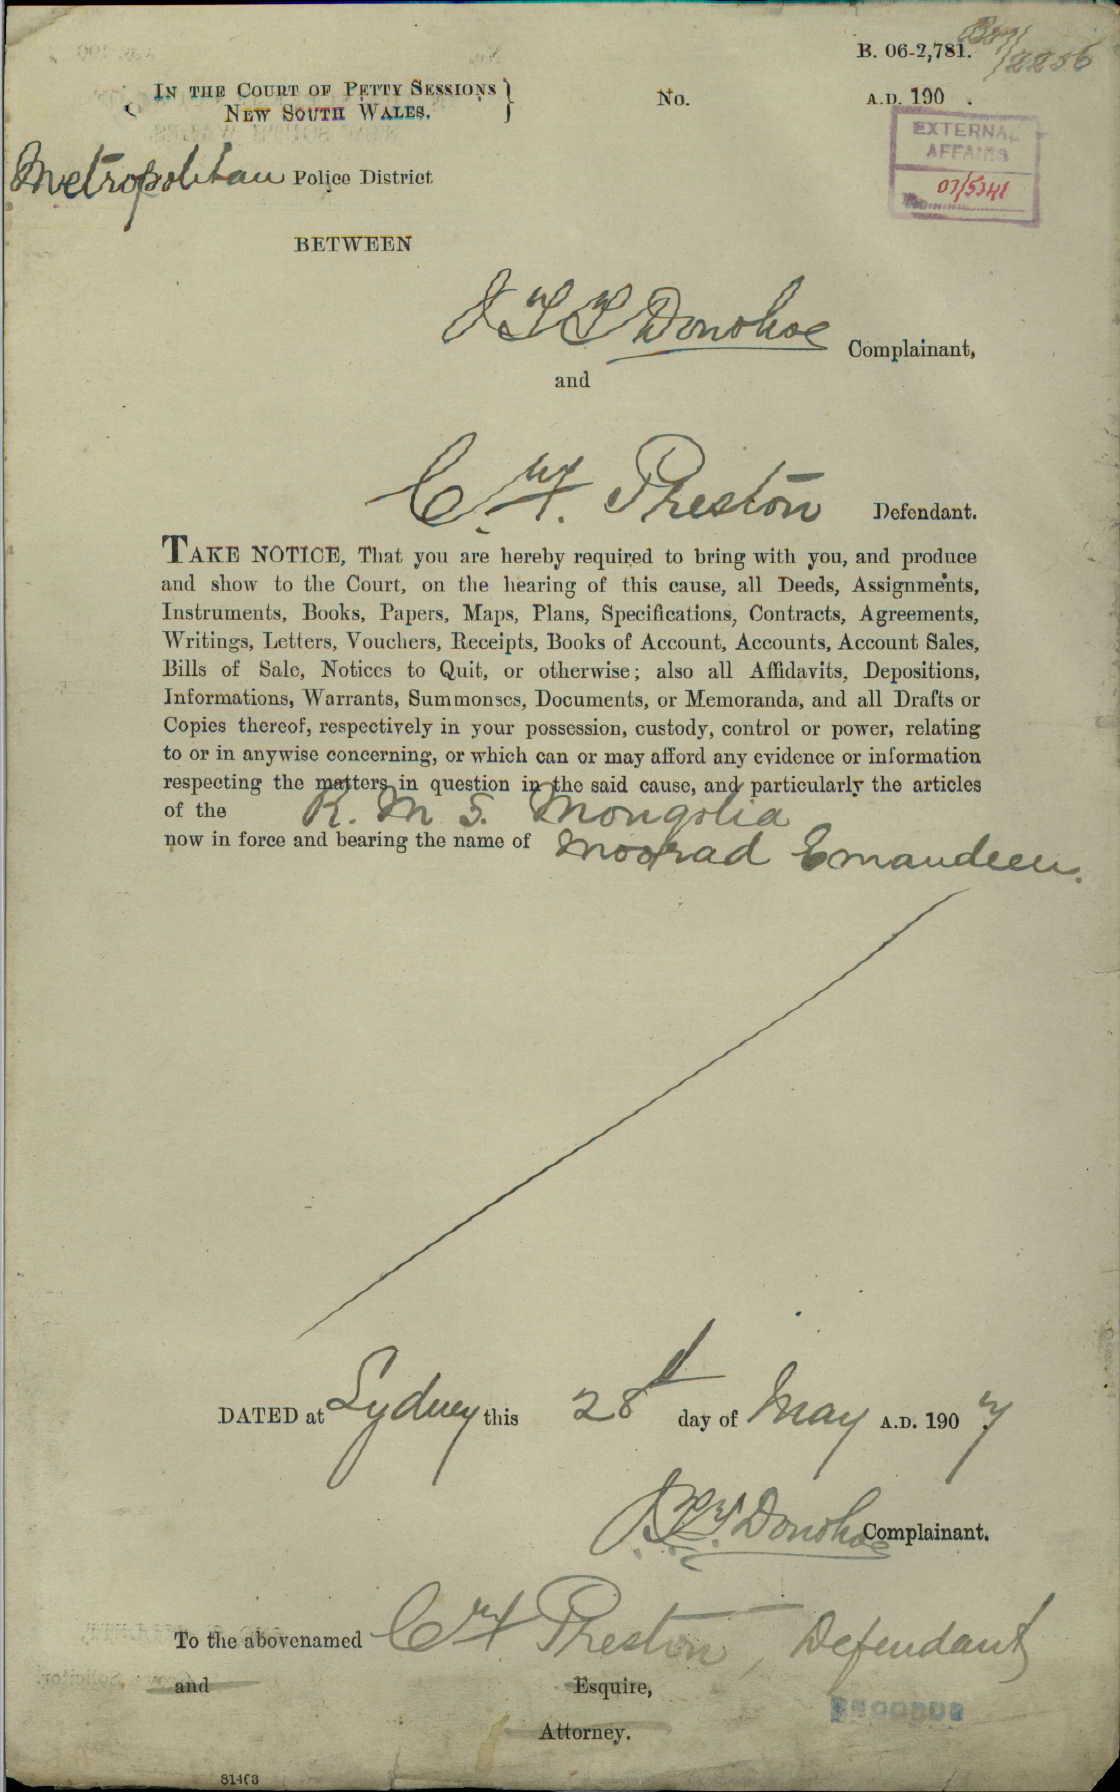 B. 06-2,781.
/2256
IN THE COURT OF PETTY SESSIONS
NEW SOUTH WALES.
No.
A.D. 190 .
EXTERNAL
AFFAIRS
07/5341
Metropolitan Police District
BETWEEN
Donohoe Complainant,
and
Preston Defendant.
TAKE NOTICE, That you are hereby required to bring with you, and produce
and show to the Court, on the hearing of this cause, all Deeds, Assignments,
Instruments, Books, Papers, Maps, Plans, Specifications, Contracts, Agreements,
Writings, Letters, Vouchers, Receipts, Books of Account, Accounts, Account Sales,
Bills of Sale, Notices to Quit, or otherwise; also all Affidavits, Depositions,
Informations, Warrants, Summonses, Documents, or Memoranda, and all Drafts or
Copies thereof, respectively in your possession, custody, control or power, relating
to or in anywise concerning, or which can or may afford any evidence or information
respecting the matters in question in the said cause, and particularly the articles
of the R. M. S. Mongolia
now in force and bearing the name of Moorad Emaudeen.
DATED at Sydney this 28th day of May A.D. 1907
Donohoe Complainant.
To the abovenamed Preston, Defendant
and Esquire,
Attorney.
81463